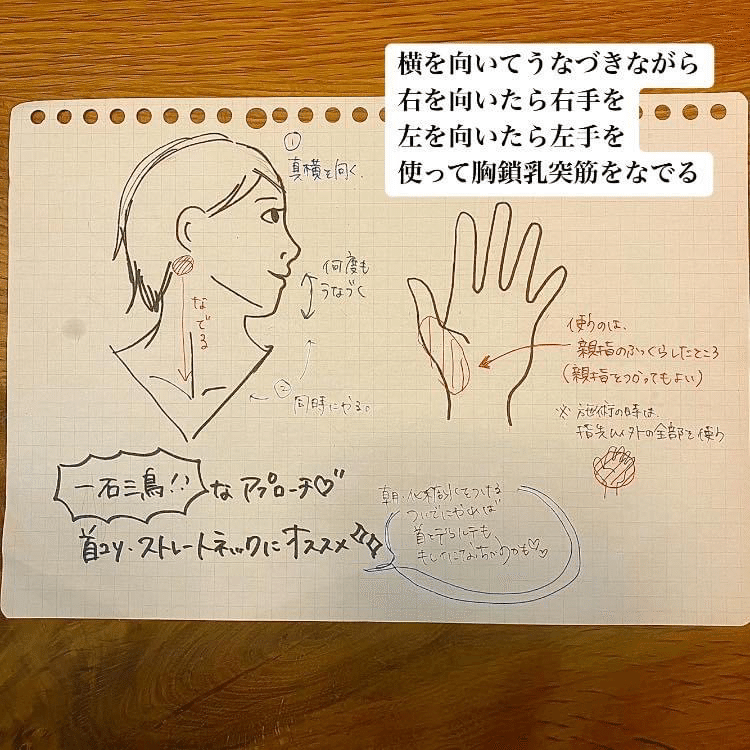 横を向いてうなづきながら
右を向いたら右手を
左を向いたら左手を
使って胸鎖乳突筋をなでる
①
真横を向く.
何度も
うなづく
なでる
②
同時にやる。
使うのは、
親指のふっくらしたところ
(親指をつかってもよい)
※ 施術の時は、
指先以外の全部を使う
一石三鳥!!なアプローチ♡
首コリ・ストレートネックにオススメ
朝・化粧水をつける
ついでにやれば
首とデコルテも
キレイになっちゃうかも♡